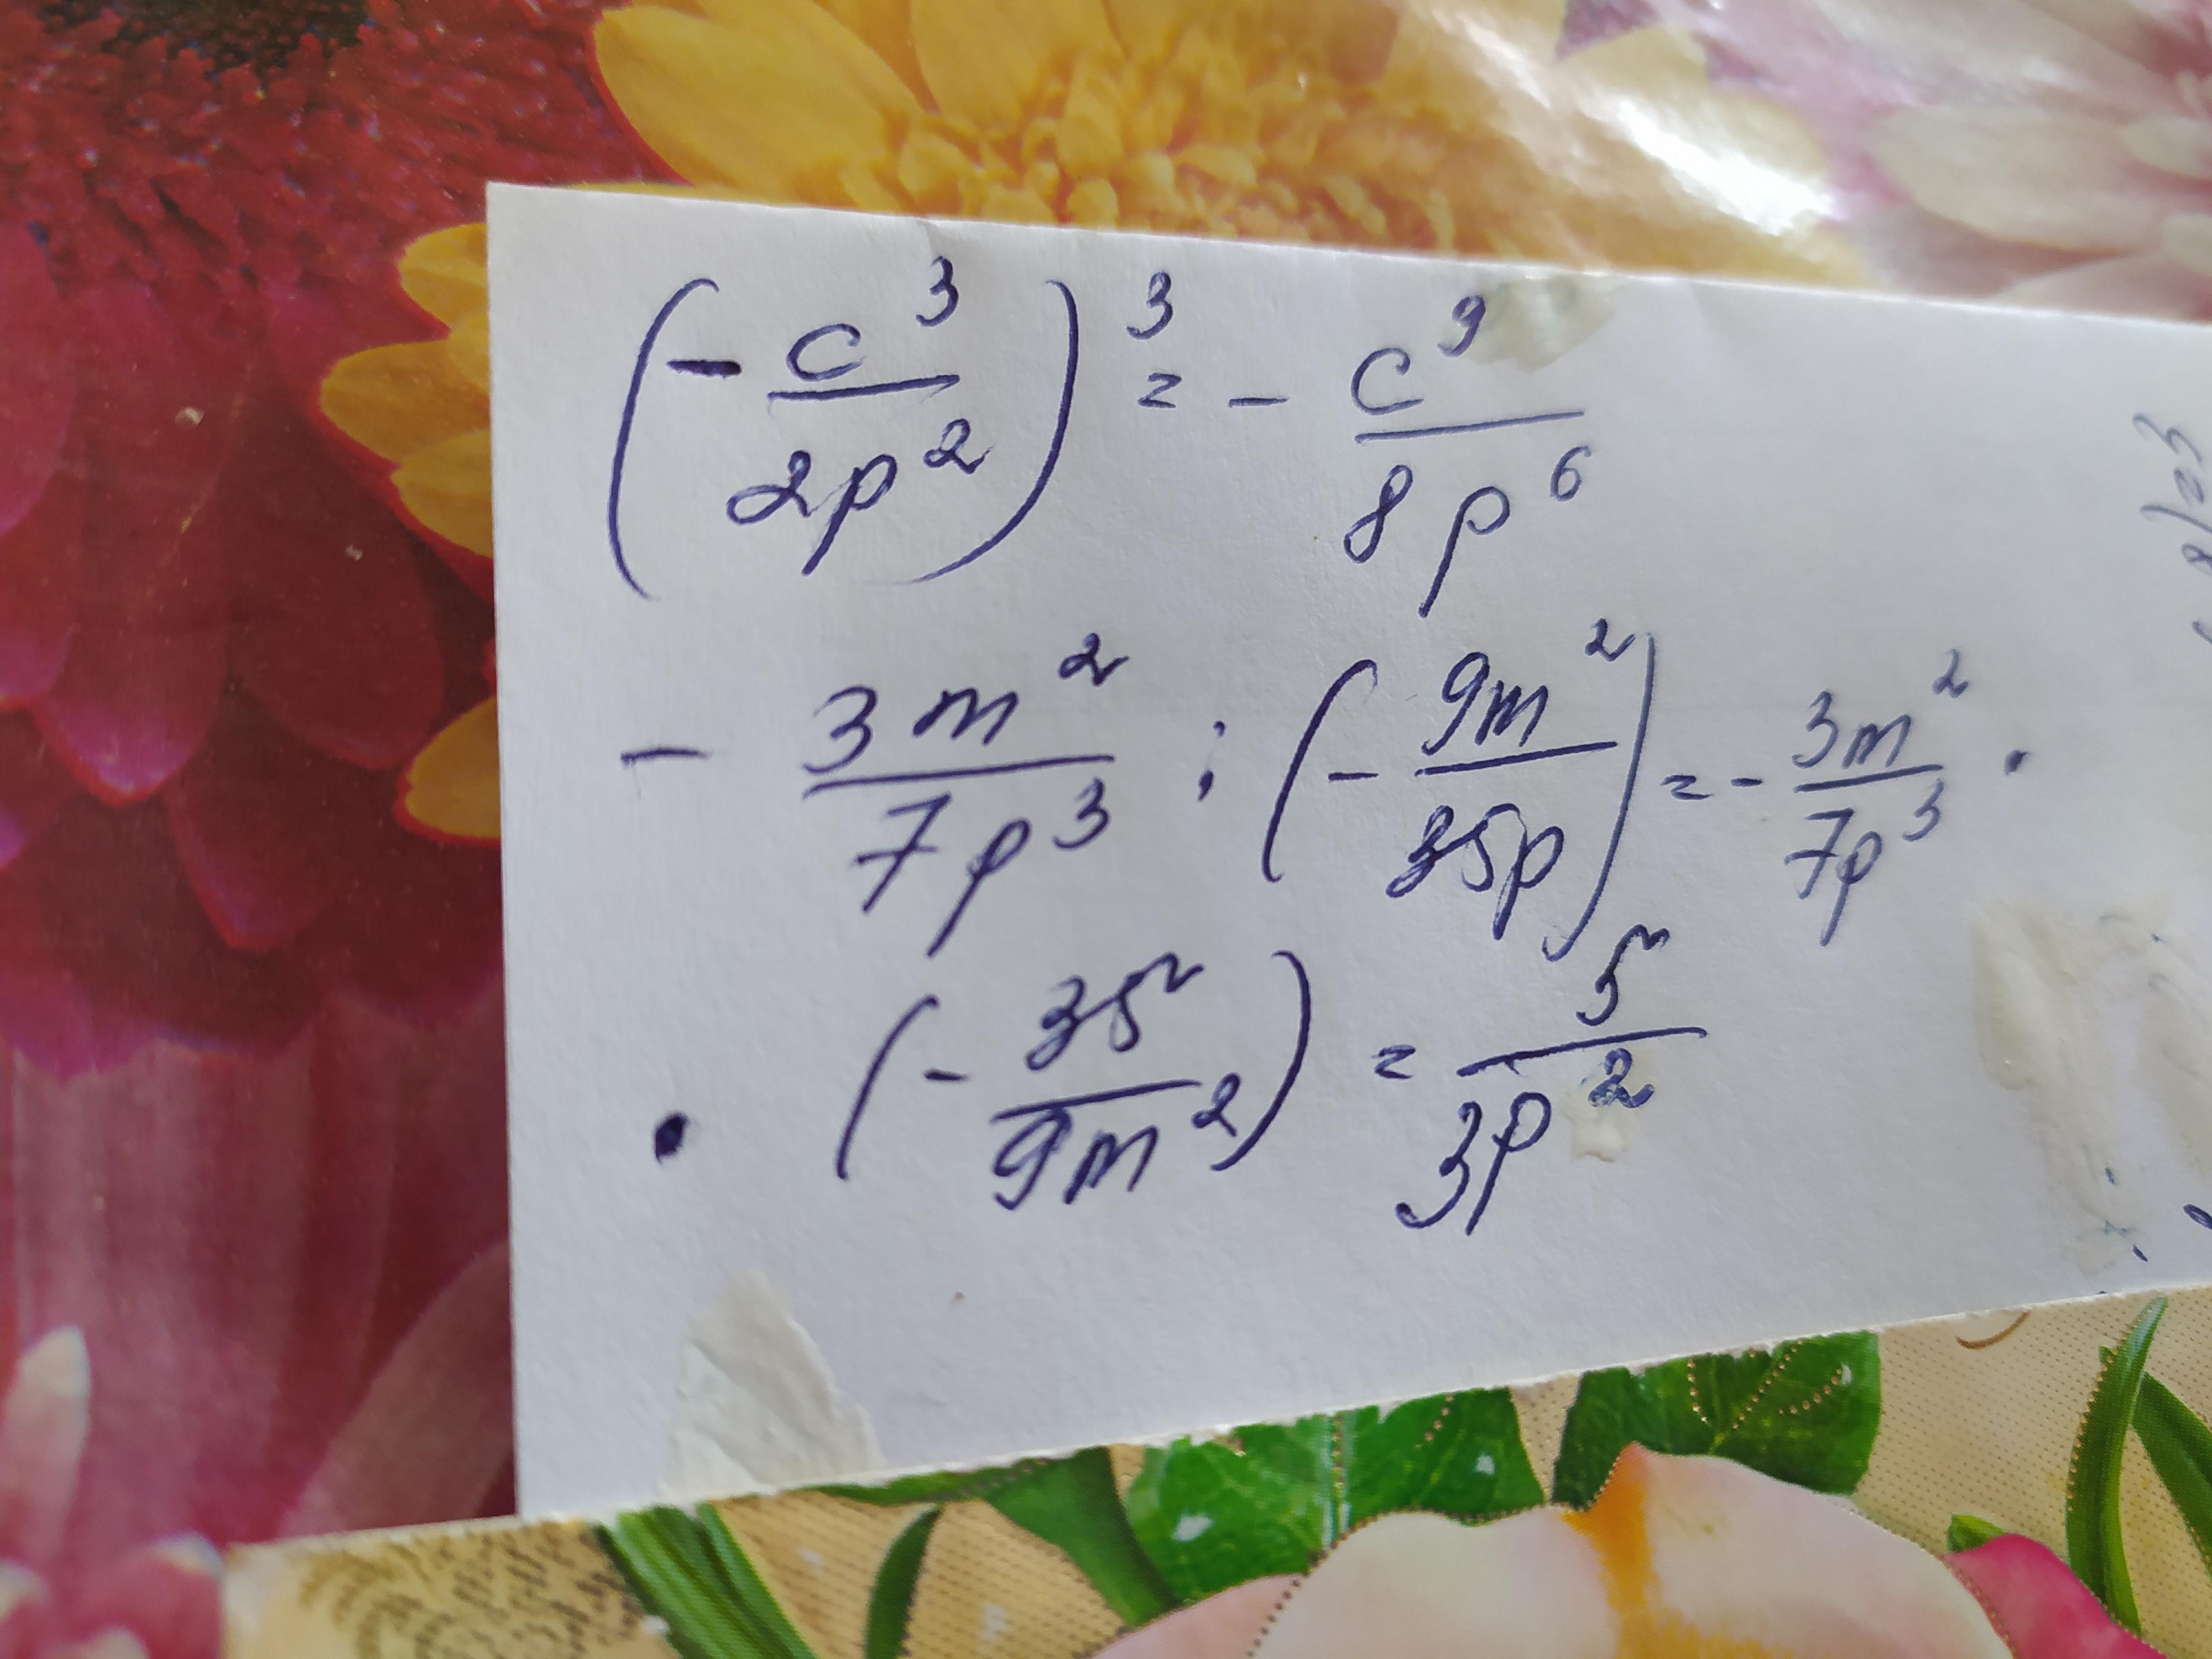 (- c³/2p²)³ = - c⁹/8p⁶
- 3m²/7p³ : (- 9m²/35p) = - 3m²/7p³ ·
· (- 35/9m²) = 5/3p²